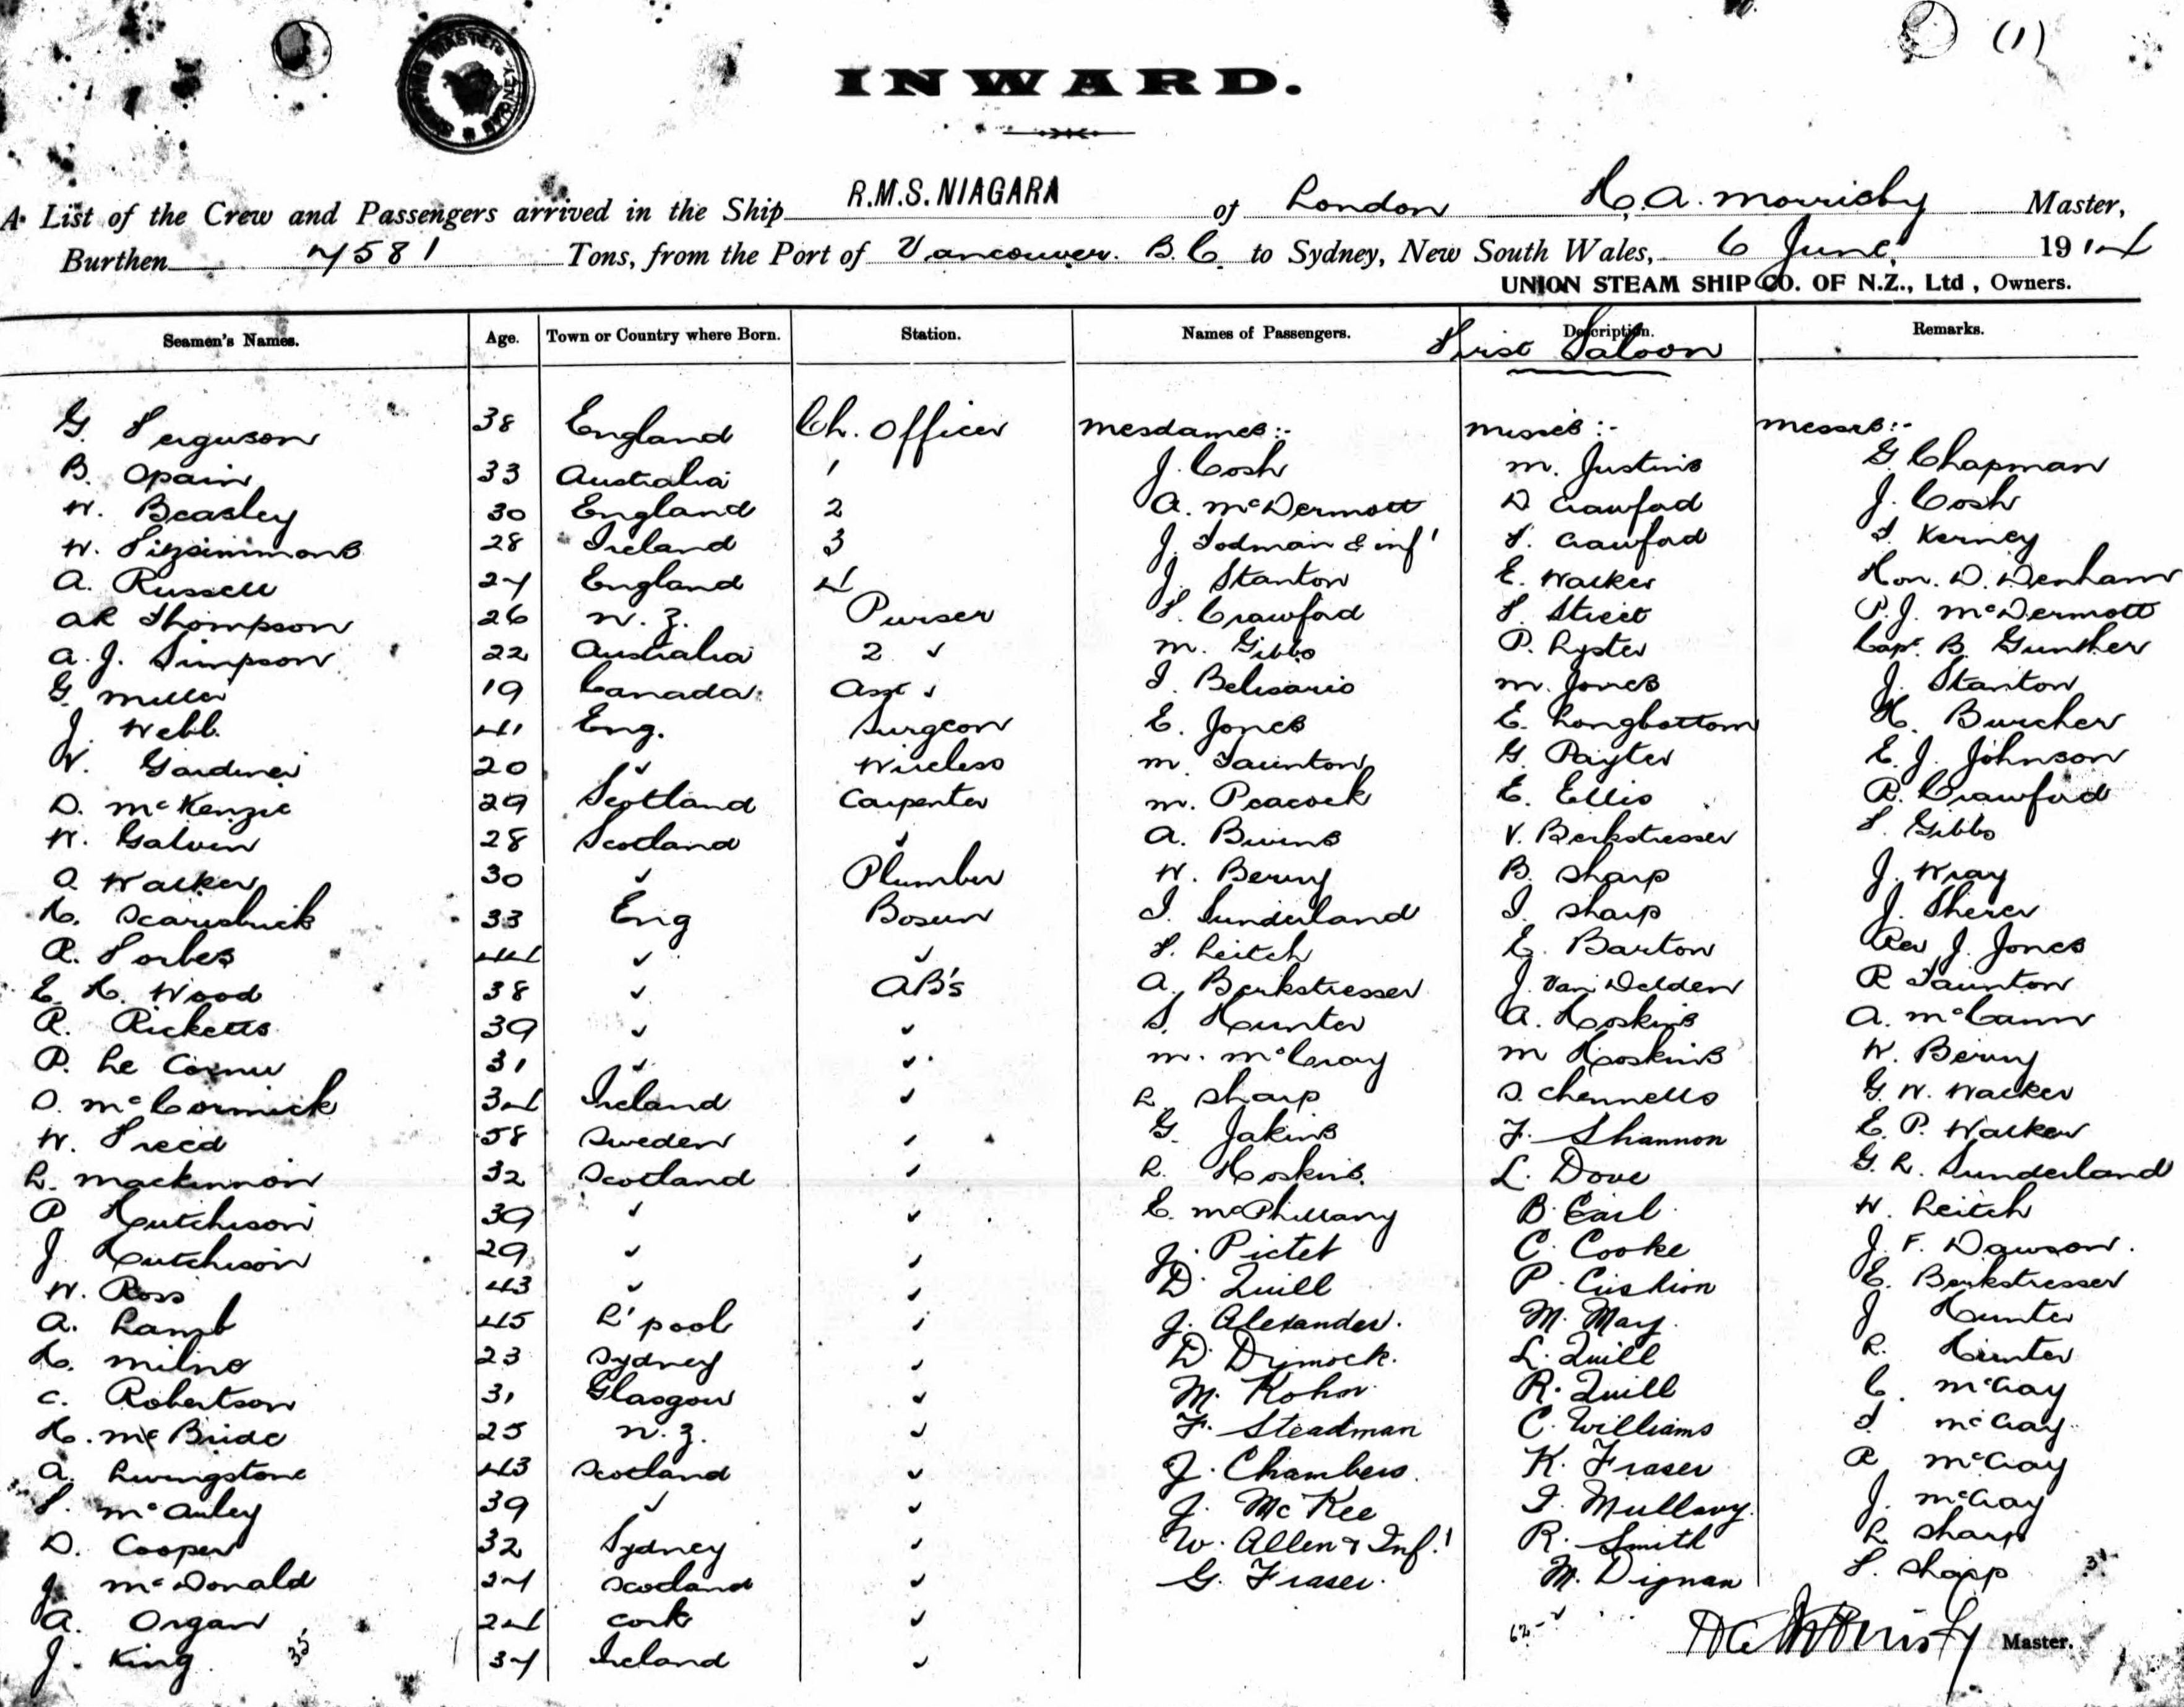 (1)
INWARD.
A List of the Crew and Passengers arrived in the Ship R.M.S. NIAGARA of London H. A. Morrisby Master,
Burthen 7581 Tons, from the Port of Vancouver. B.C. to Sydney, New South Wales, 6 June, 1914
UNION STEAM SHIP CO. OF N.Z., Ltd, Owners.
Seamen's Names. Age. Town or Country where Born. Station. Names of Passengers. Description. Remarks.
First Saloon
G. Ferguson 38 England Ch. Officer Mesdames:- Misses:- Messrs:-
B. Opain 33 Australia 1 J. Cosh M. Justins G. Chapman
W. Beasley 30 England 2 A. McDermott D Crawford J. Cosh
W. Fitzsimmons 28 Ireland 3 J. Todman & inf' F. Crawford T. Kerney
A. Russell 27 England 4 J. Stanton E. Walker Hon. D. Denham
AR Thompson 26 N.Z. Purser F. Crawford F. Street P.J. McDermott
A.J. Simpson 22 Australia 2 ✓ M. Gibbs P. Lyster Capt. B. Gunther
G. Miller 19 Canada Asst ✓ I. Belisario M. Jones J. Stanton
J. Webb. 41 Eng. Surgeon E. Jones E. Longbottom H. Burcher
V. Gardiner 20 ✓ Wireless M. Taunton G. Payter E. J. Johnson
D. McKenzie 29 Scotland Carpenter M. Peacock E. Ellis R. Crawford
W. Galvin 28 Scotland ✓ A. Burns V. Berkstresser F. Gibbs
O. Walker 30 ✓ Plumber W. Berry B. Sharp J. Wray
H. Scarisbrick 33 Eng Bosun I. Sunderland I. Sharp J. Sherer
R. Forbes 44 ✓ ✓ F. Leitch E. Barton Rev J. Jones
E. H. Wood 38 ✓ AB's A. Berkstresser J. Van Delden R Taunton
R. Ricketts 39 ✓ ✓ S. Hunter A. Hoskins A. McCann
P. Le Cornu 31 ✓ ✓ M. McCray M Hoskins W. Berry
D. McCormick 34 Ireland ✓ L. Sharp S. Chennells G. W. Walker
W. Freed 58 Sweden ✓ G. Jakins F. Shannon E. P. Walker
L. MacKinnon 32 Scotland ✓ L. Hoskins. L. Dove G. L. Sunderland
P Hutchison 39 ✓ ✓ E. McPhillamy B. Earl W. Leitch
J. Hutchison 29 ✓ ✓ J. Pictet C. Cooke J. F. Dawson.
W. Ross 43 ✓ ✓ D. Quill P. Cushion E. Berkstresser
A. Lamb 45 L'pool ✓ J. Alexander. M. May. J Hunter
H. Milne 23 Sydney ✓ D. Dymock. L. Quill R. Hunter
C. Robertson 31 Glasgow ✓ M. Kohn R. Quill C. McCray
H. McBride 25 N.Z. ✓ F. Steadman C. Williams S McCray
A. Livingstone 43 Scotland ✓ J. Chambers. K. Fraser R McCray
F. McAuley 39 ✓ ✓ J. McKee I. Mullavy. J. McCray
D. Cooper 32 Sydney ✓ W. Allen & Inf.' R. Smith L Sharp
J. McDonald 27 Scotland ✓ G. Fraser. M. Dignan F. Sharp
A. Organ 24 Cork ✓ 62 - ✓
J. King 35 37 Ireland ✓ Master.